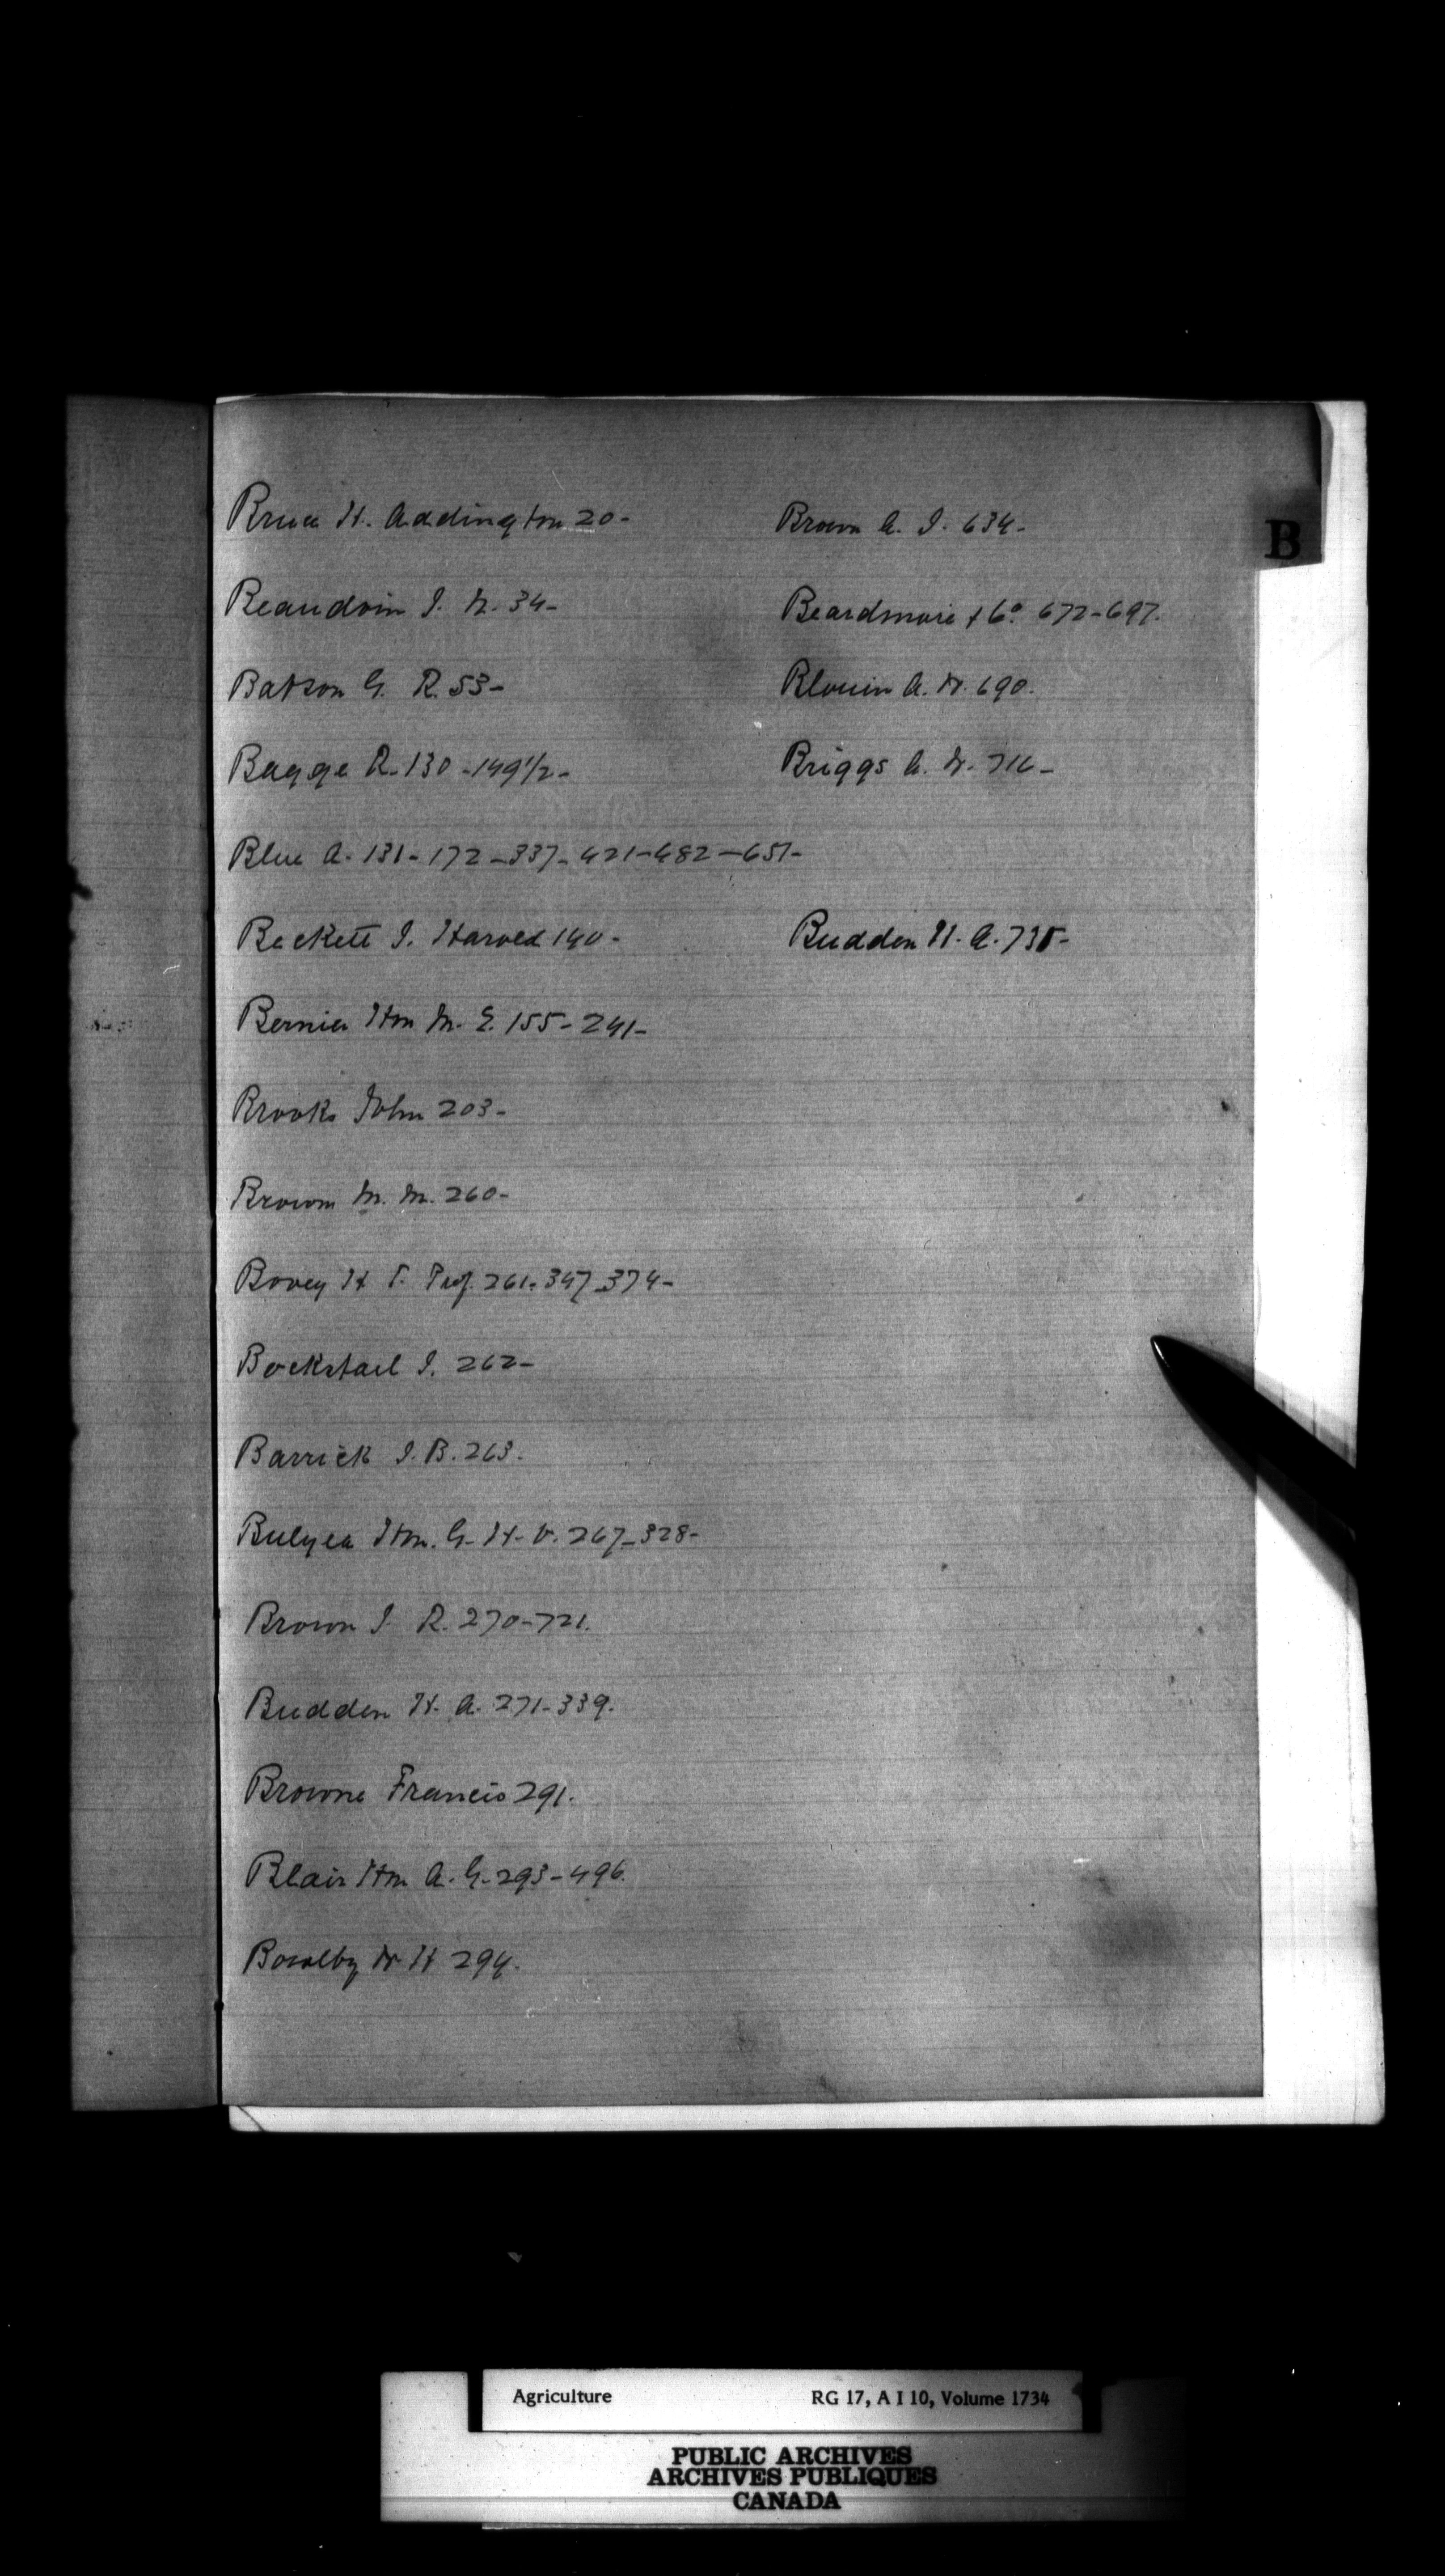 B
Bruce H. Addington 20-
Beaudoin J. N. 34-
Batson G. R. 53-
Bagge R. 130-149 1/2-
Blue A. 131-172-337-421-482-651-
Beckett J. Harold 140-
Bernier Hon M. E. 155-241-
Brooks John 203-
Brown M. M. 260-
Bovey H T. Prof. 261-347-374-
Bockstael J. 262-
Barrick J. B. 263.
Bulyea Hon. G. H. V. 267-328-
Brown J R. 270-721.
Budden H. A. 271-339.
Browne Francis 291.
Blair Hon A. G. 293-496.
Bowlby W H 294.
Brown A. J. 634-
Beardmore & Co. 672-697.
Blouin A. W. 690.
Briggs A. W. 716-
Budden H. A.
Agriculture RG 17, A I 10, Volume 1734
PUBLIC ARCHIVES
ARCHIVES PUBLIQUES
CANADA